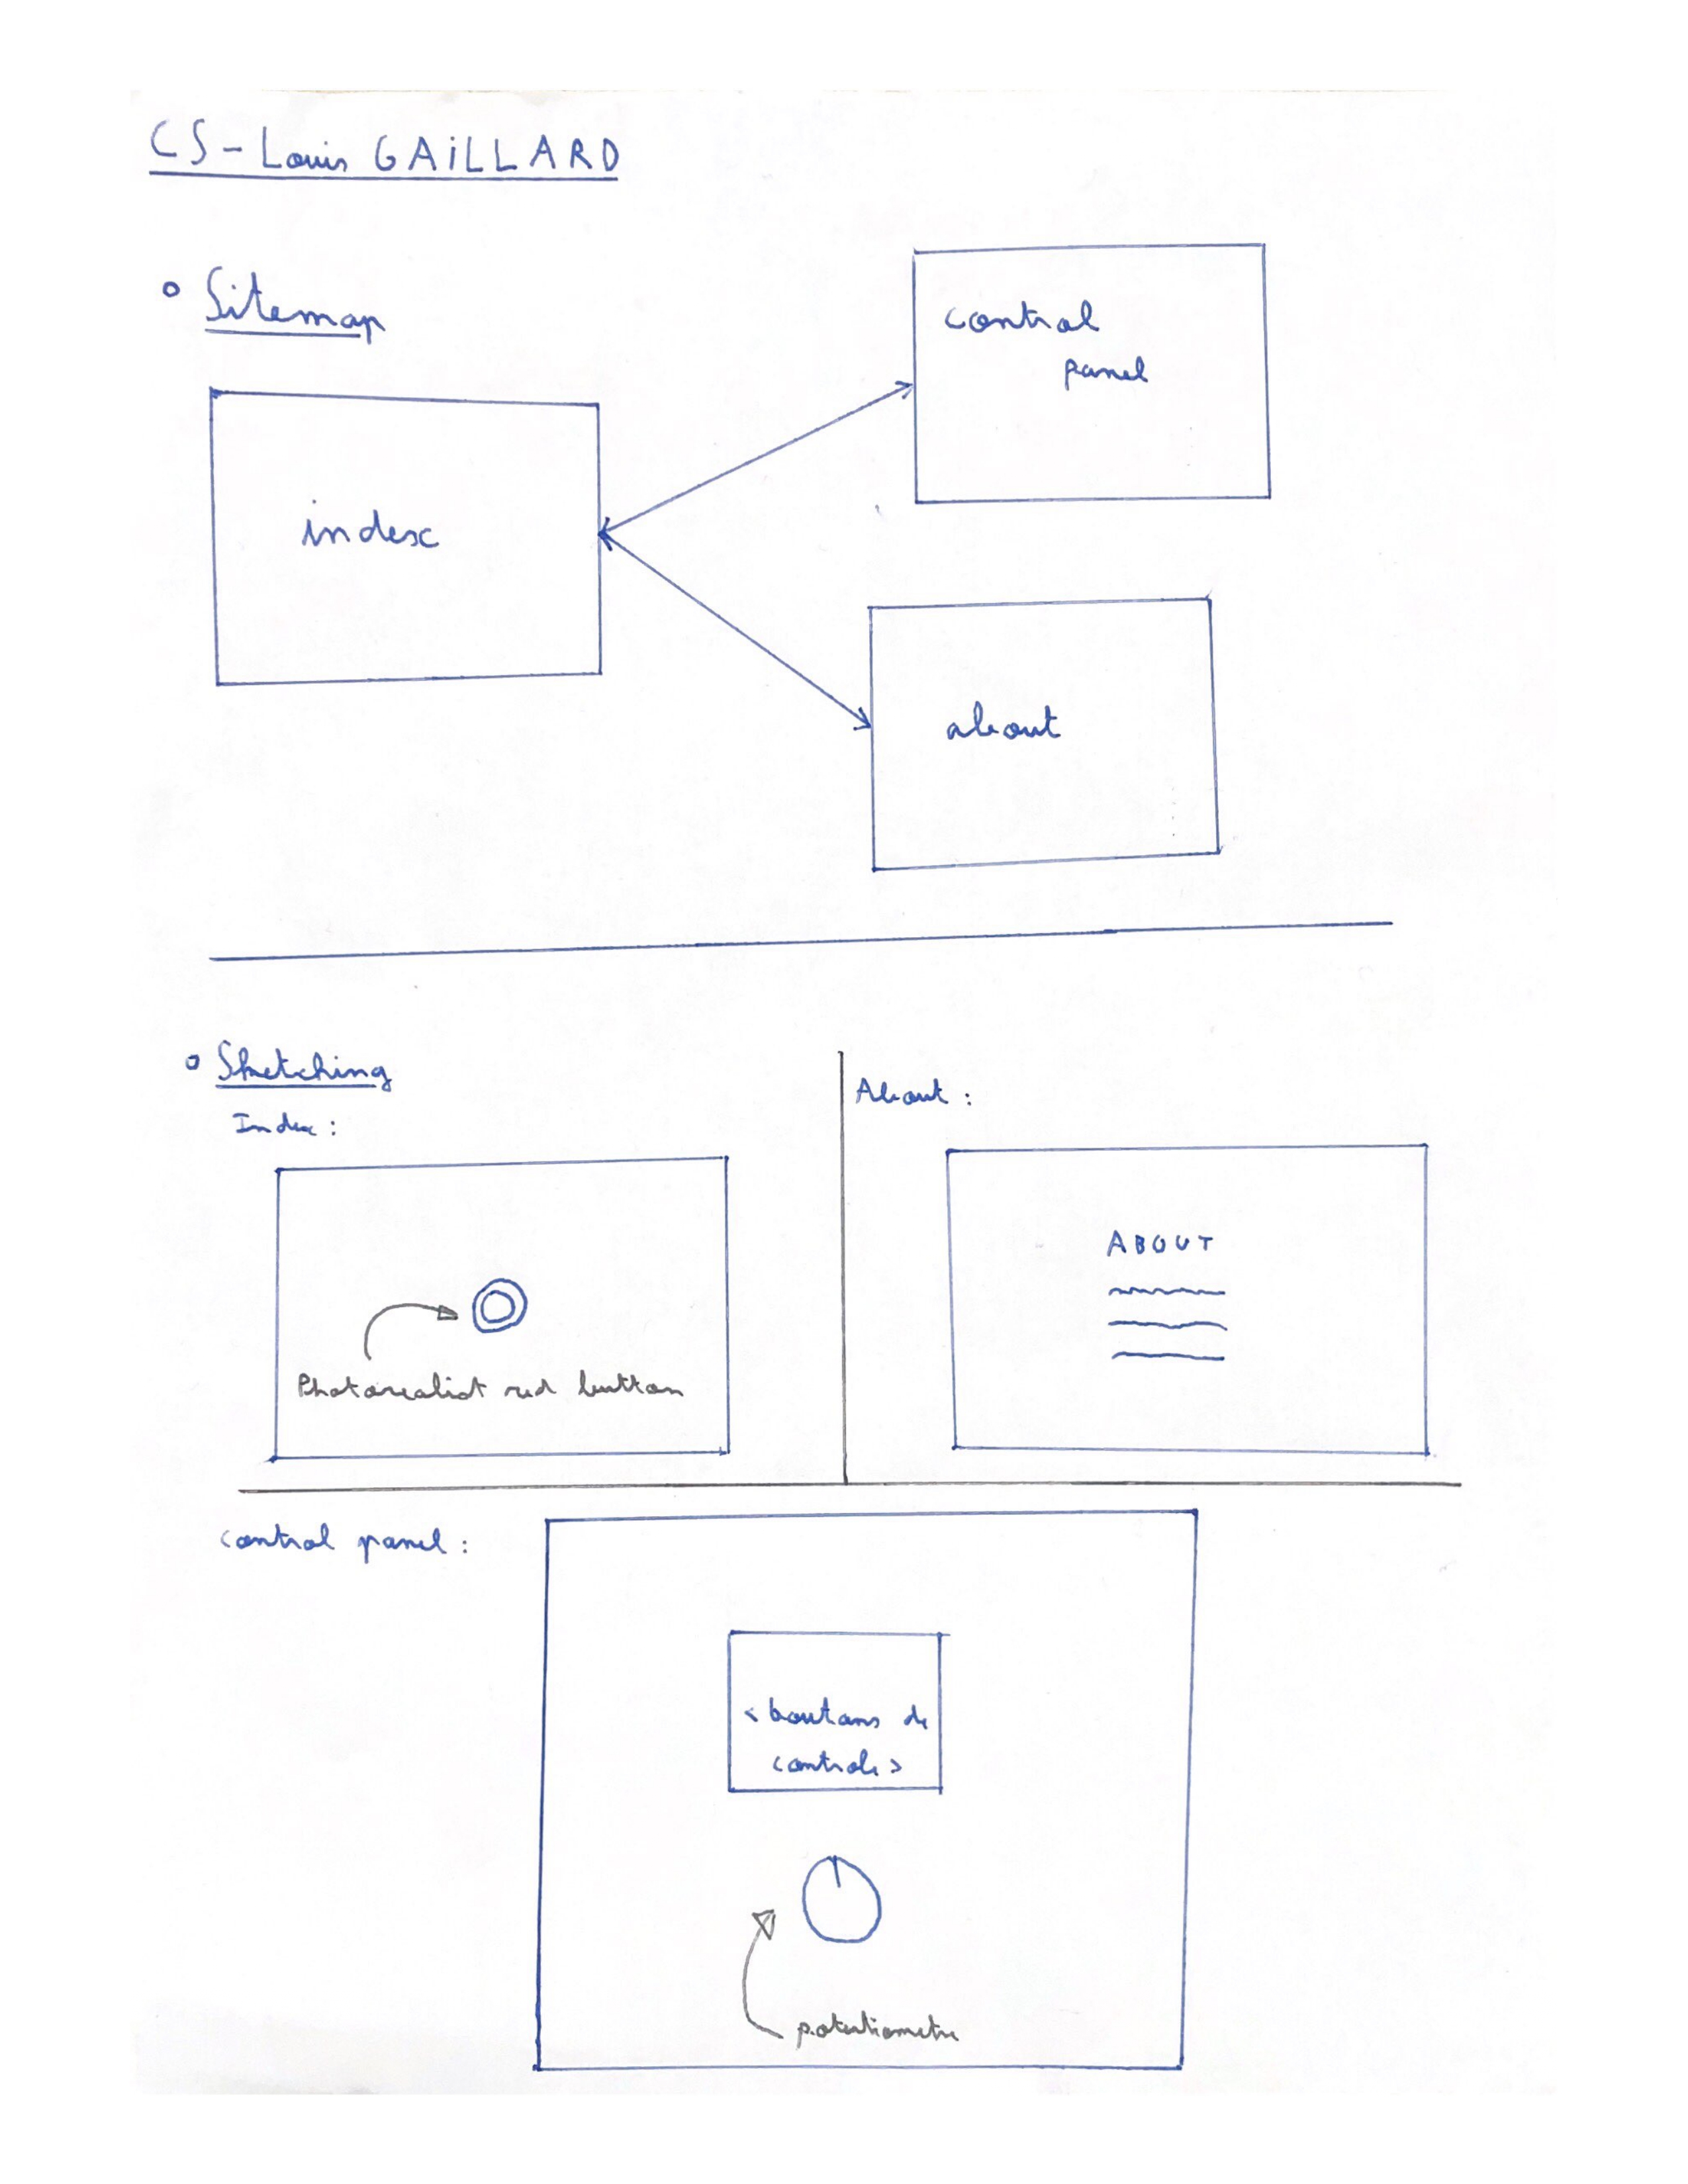 CS - Louis GAILLARD
Sitemap
control
panel
index
about
Sketching
Index :
About :
ABOUT
Photorealist red button
control panel :
<boutons de
controle>
potentiometre